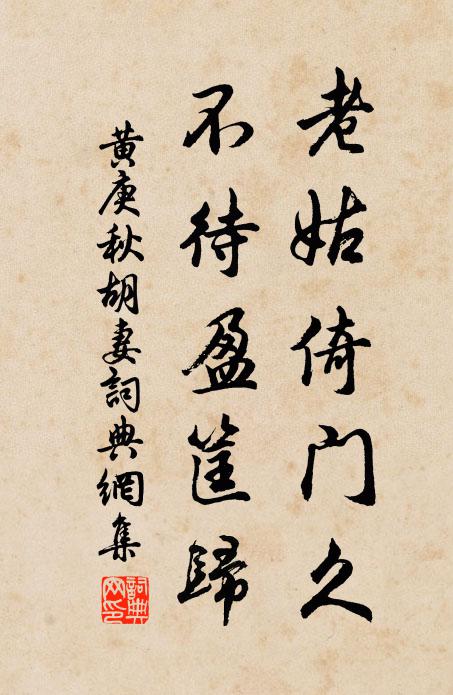 老姑倚门久
不待盈筐歸
黃庚秋胡妻詞典網集
詞典网印